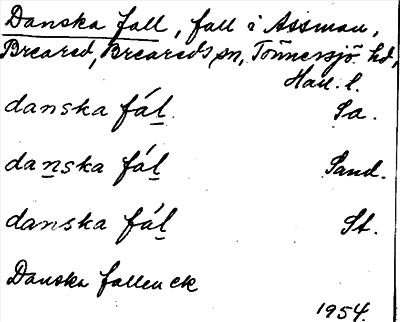 Danska fall, fall i Assman,
Breared, Breareds sn, Tönnersjö hd,
Hall. l.
danska fál Sa.
danska fál Sand.
danska fál St.
Danska fallen ek
1954.